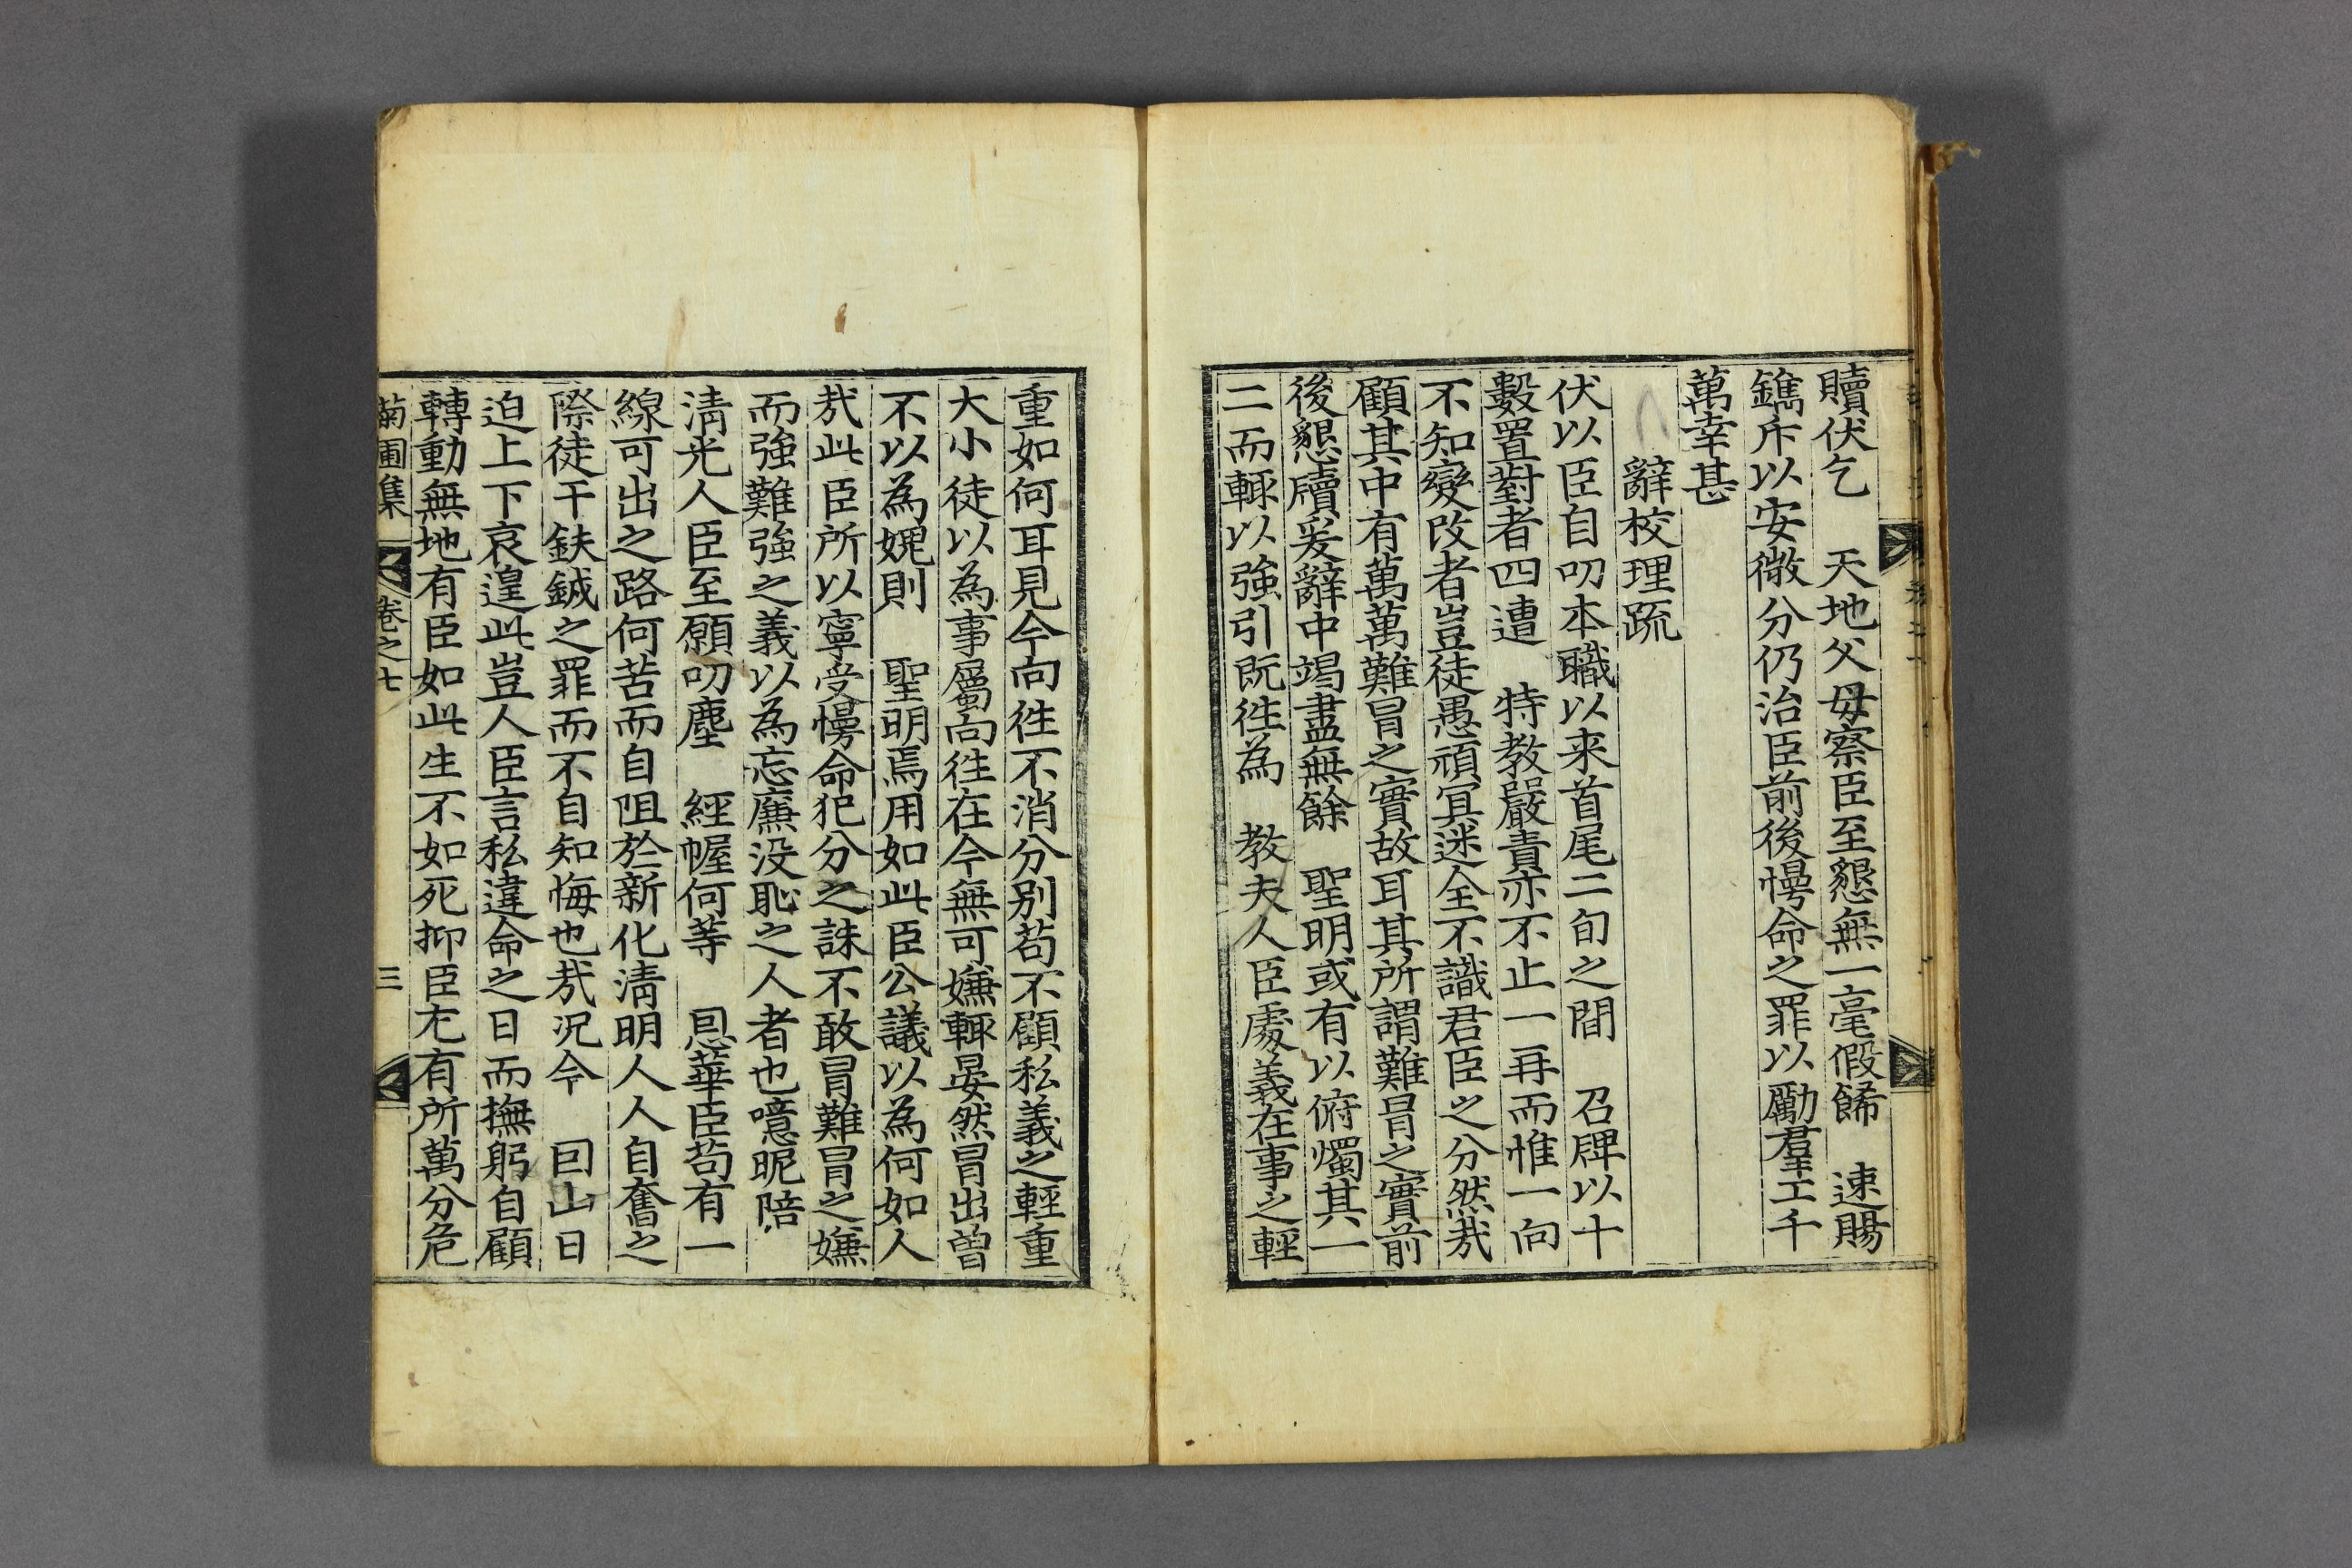 贖伏乞　天地父母察臣至懇無一毫假餙　速賜
鐫斥以安微分仍治臣前後慢命之罪以勵羣工千
萬幸甚
辭校理疏
伏以臣自叨本職以来首尾二旬之間　召牌以十
數置對者四遭　特教嚴責亦不止一再而惟一向
不知變改者豈徒愚頑冥迷全不識君臣之分然㢤
顧其中有萬萬難冒之實故耳其所謂難冒之實前
後懇牘爰辭中竭盡無餘　聖明或有以俯燭其一
二而輒以強引旣徃為　教夫人臣處義在事之輕
重如何耳見今向徃不消分別苟不顧私義之輕重
大小徒以為事屬向徃在今無可嫌輒晏然冒出曽
不以為媿則　聖明焉用如此臣公議以為何如人
㢤此臣所以寧受慢命犯分之誅不敢冒難冒之嫌
而強難強之義以為忘廉没恥之人者也噫昵陪
淸光人臣至願叨塵　經幄何等　恩華臣苟有一
線可出之路何苦而自阻於新化淸明人人自奮之
際徒干鈇鉞之罪而不自知悔也㢤况今　囘山日
迫上下哀遑此豈人臣言私違命之日而撫躬自顧
轉動無地有臣如此生不如死抑臣尤有所萬分危
菊圃集　卷之七　三